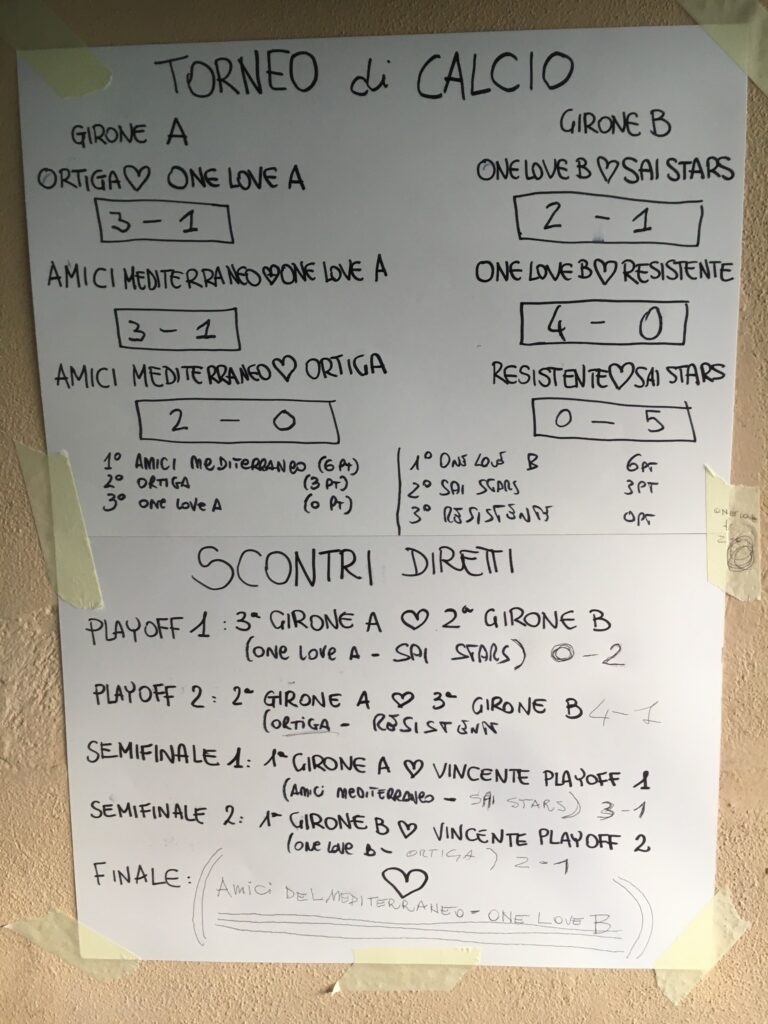 TORNEO di CALCIO
GIRONE A
ORTIGA ♡ ONE LOVE A
3 - 1
AMICI MEDITERRANEO ♡ ONE LOVE A
3 - 1
AMICI MEDITERRANEO ♡ ORTIGA
2 - 0
1° AMICI MEDITERRANEO (6 PT)
2° ORTIGA (3 PT)
3° ONE LOVE A (0 PT)
GIRONE B
ONE LOVE B ♡ SAI STARS
2 - 1
ONE LOVE B ♡ RESISTENTE
4 - 0
RESISTENTE ♡ SAI STARS
0 - 5
1° ONE LOVE B 6PT
2° SAI STARS 3PT
3° RESISTENTE 0PT
SCONTRI DIRETTI
PLAYOFF 1: 3ª GIRONE A ♡ 2ª GIRONE B
(ONE LOVE A - SAI STARS) 0 - 2
PLAYOFF 2: 2ª GIRONE A ♡ 3ª GIRONE B 4 - 1
(ORTIGA - RESISTENT
SEMIFINALE 1: 1ª GIRONE A ♡ VINCENTE PLAYOFF 1
(AMICI MEDITERRANEO - SAI STARS) 3-1
SEMIFINALE 2: 1ª GIRONE B ♡ VINCENTE PLAYOFF 2
(ONE LOVE B - ORTIGA) 2-1
FINALE: ♡
(AMICI DEL MEDITERRANEO - ONE LOVE B)
ONE LOVE